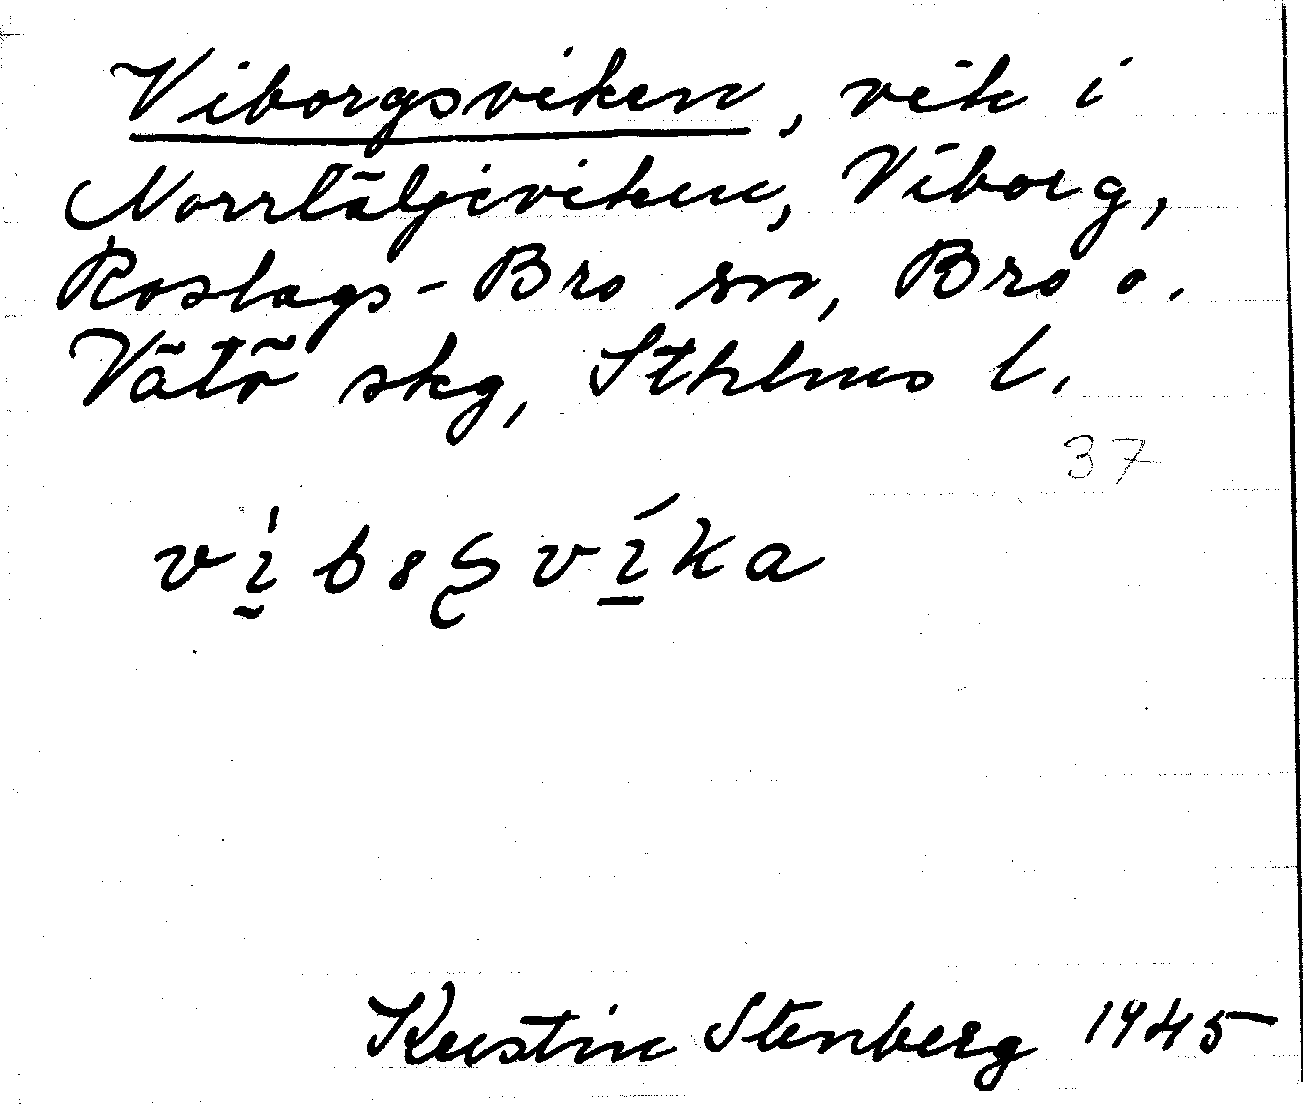 Viborgsviken, vik i
Norrtäljeviken, Viborg,
Roslags-Bro sn, Bro o.
Vätö skg, Sthlms l.
37
Kerstin Stenberg 1945